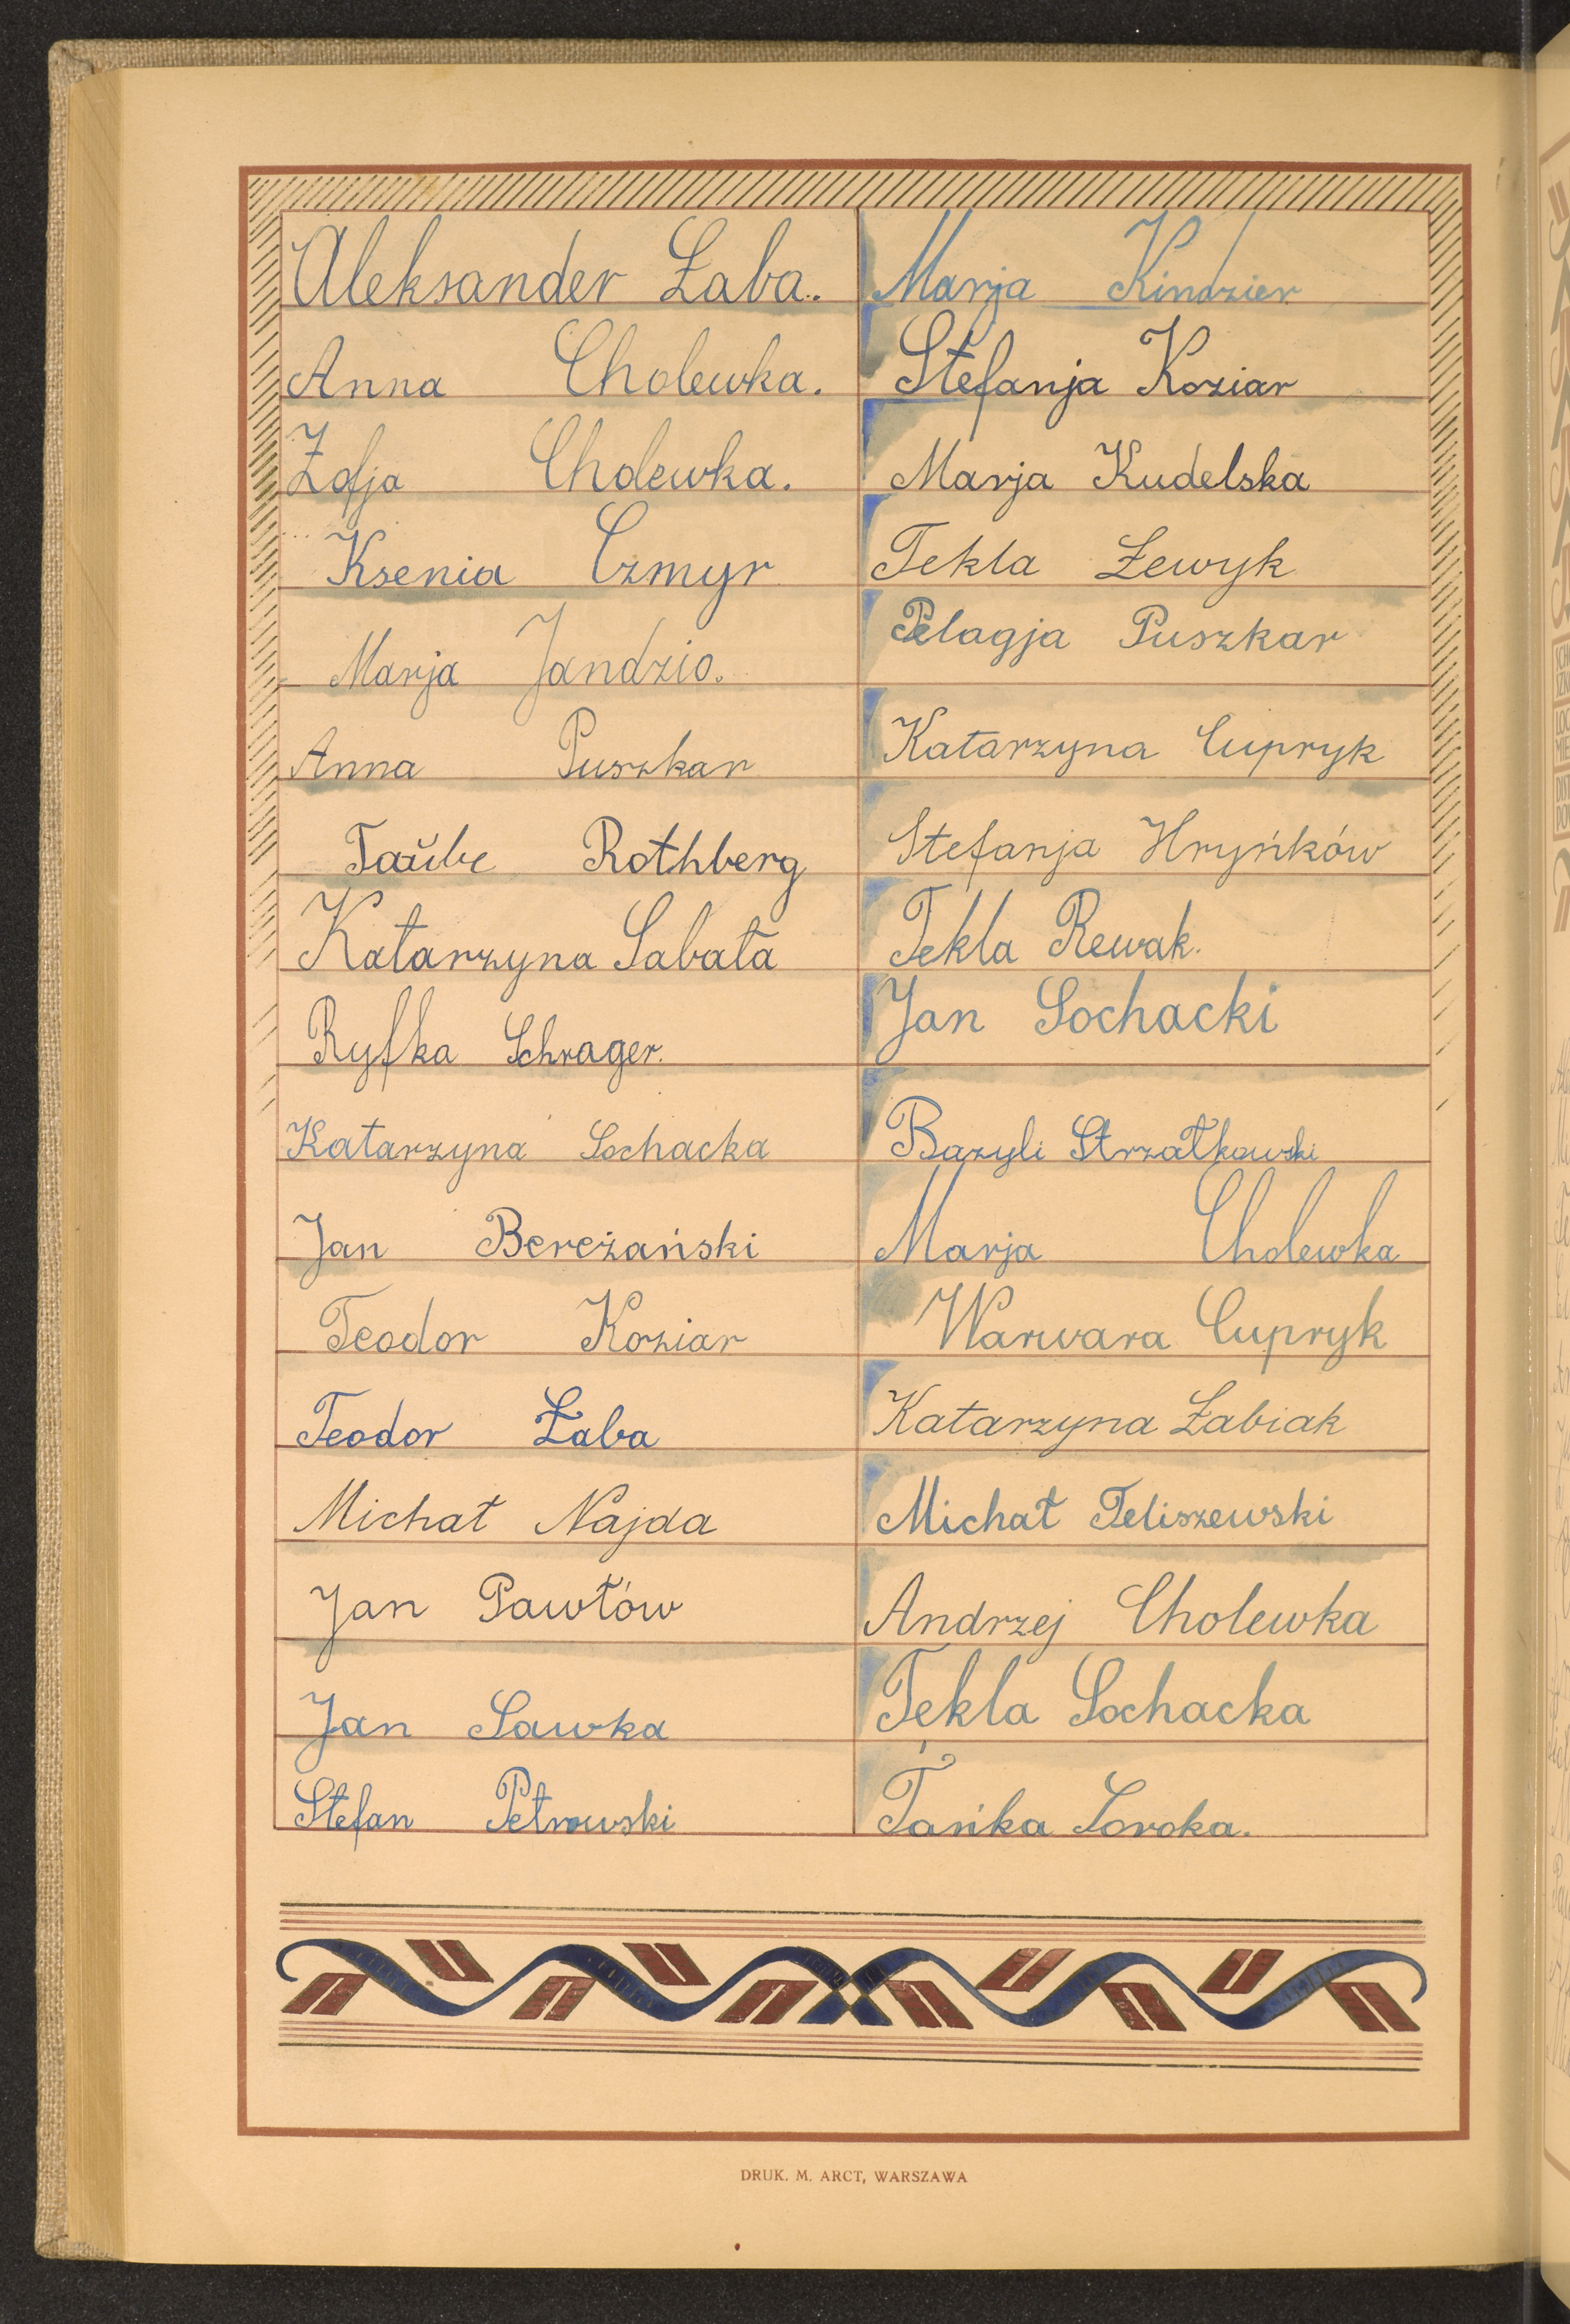 Aleksander Łaba.
Anna Cholewka.
Zofja Cholewka.
Ksenia Czmyr
Marja Jandzio.
Anna Puszkar
Taŭbe Rothberg
Katarzyna Sabata
Ryfka Schrager.
Katarzyna Sochacka
Jan Bereżański
Teodor Koziar
Teodor Łaba
Michał Najda
Jan Pawłów
Jan Sawka
Stefan Petrowski
Marja Kindzier
Stefanja Koziar
Marja Kudelska
Tekla Lewyk
Pelagja Puszkar
Katarzyna Cupryk
Stefanja Hryńków
Tekla Rewak.
Jan Sochacki
Bazyli Strzałkowski
Marja Cholewka
Warwara Cupryk
Katarzyna Łabiak
Michał Teliszewski
Andrzej Cholewka
Tekla Sochacka
Tańka Soroka.
DRUK. M. ARCT, WARSZAWA